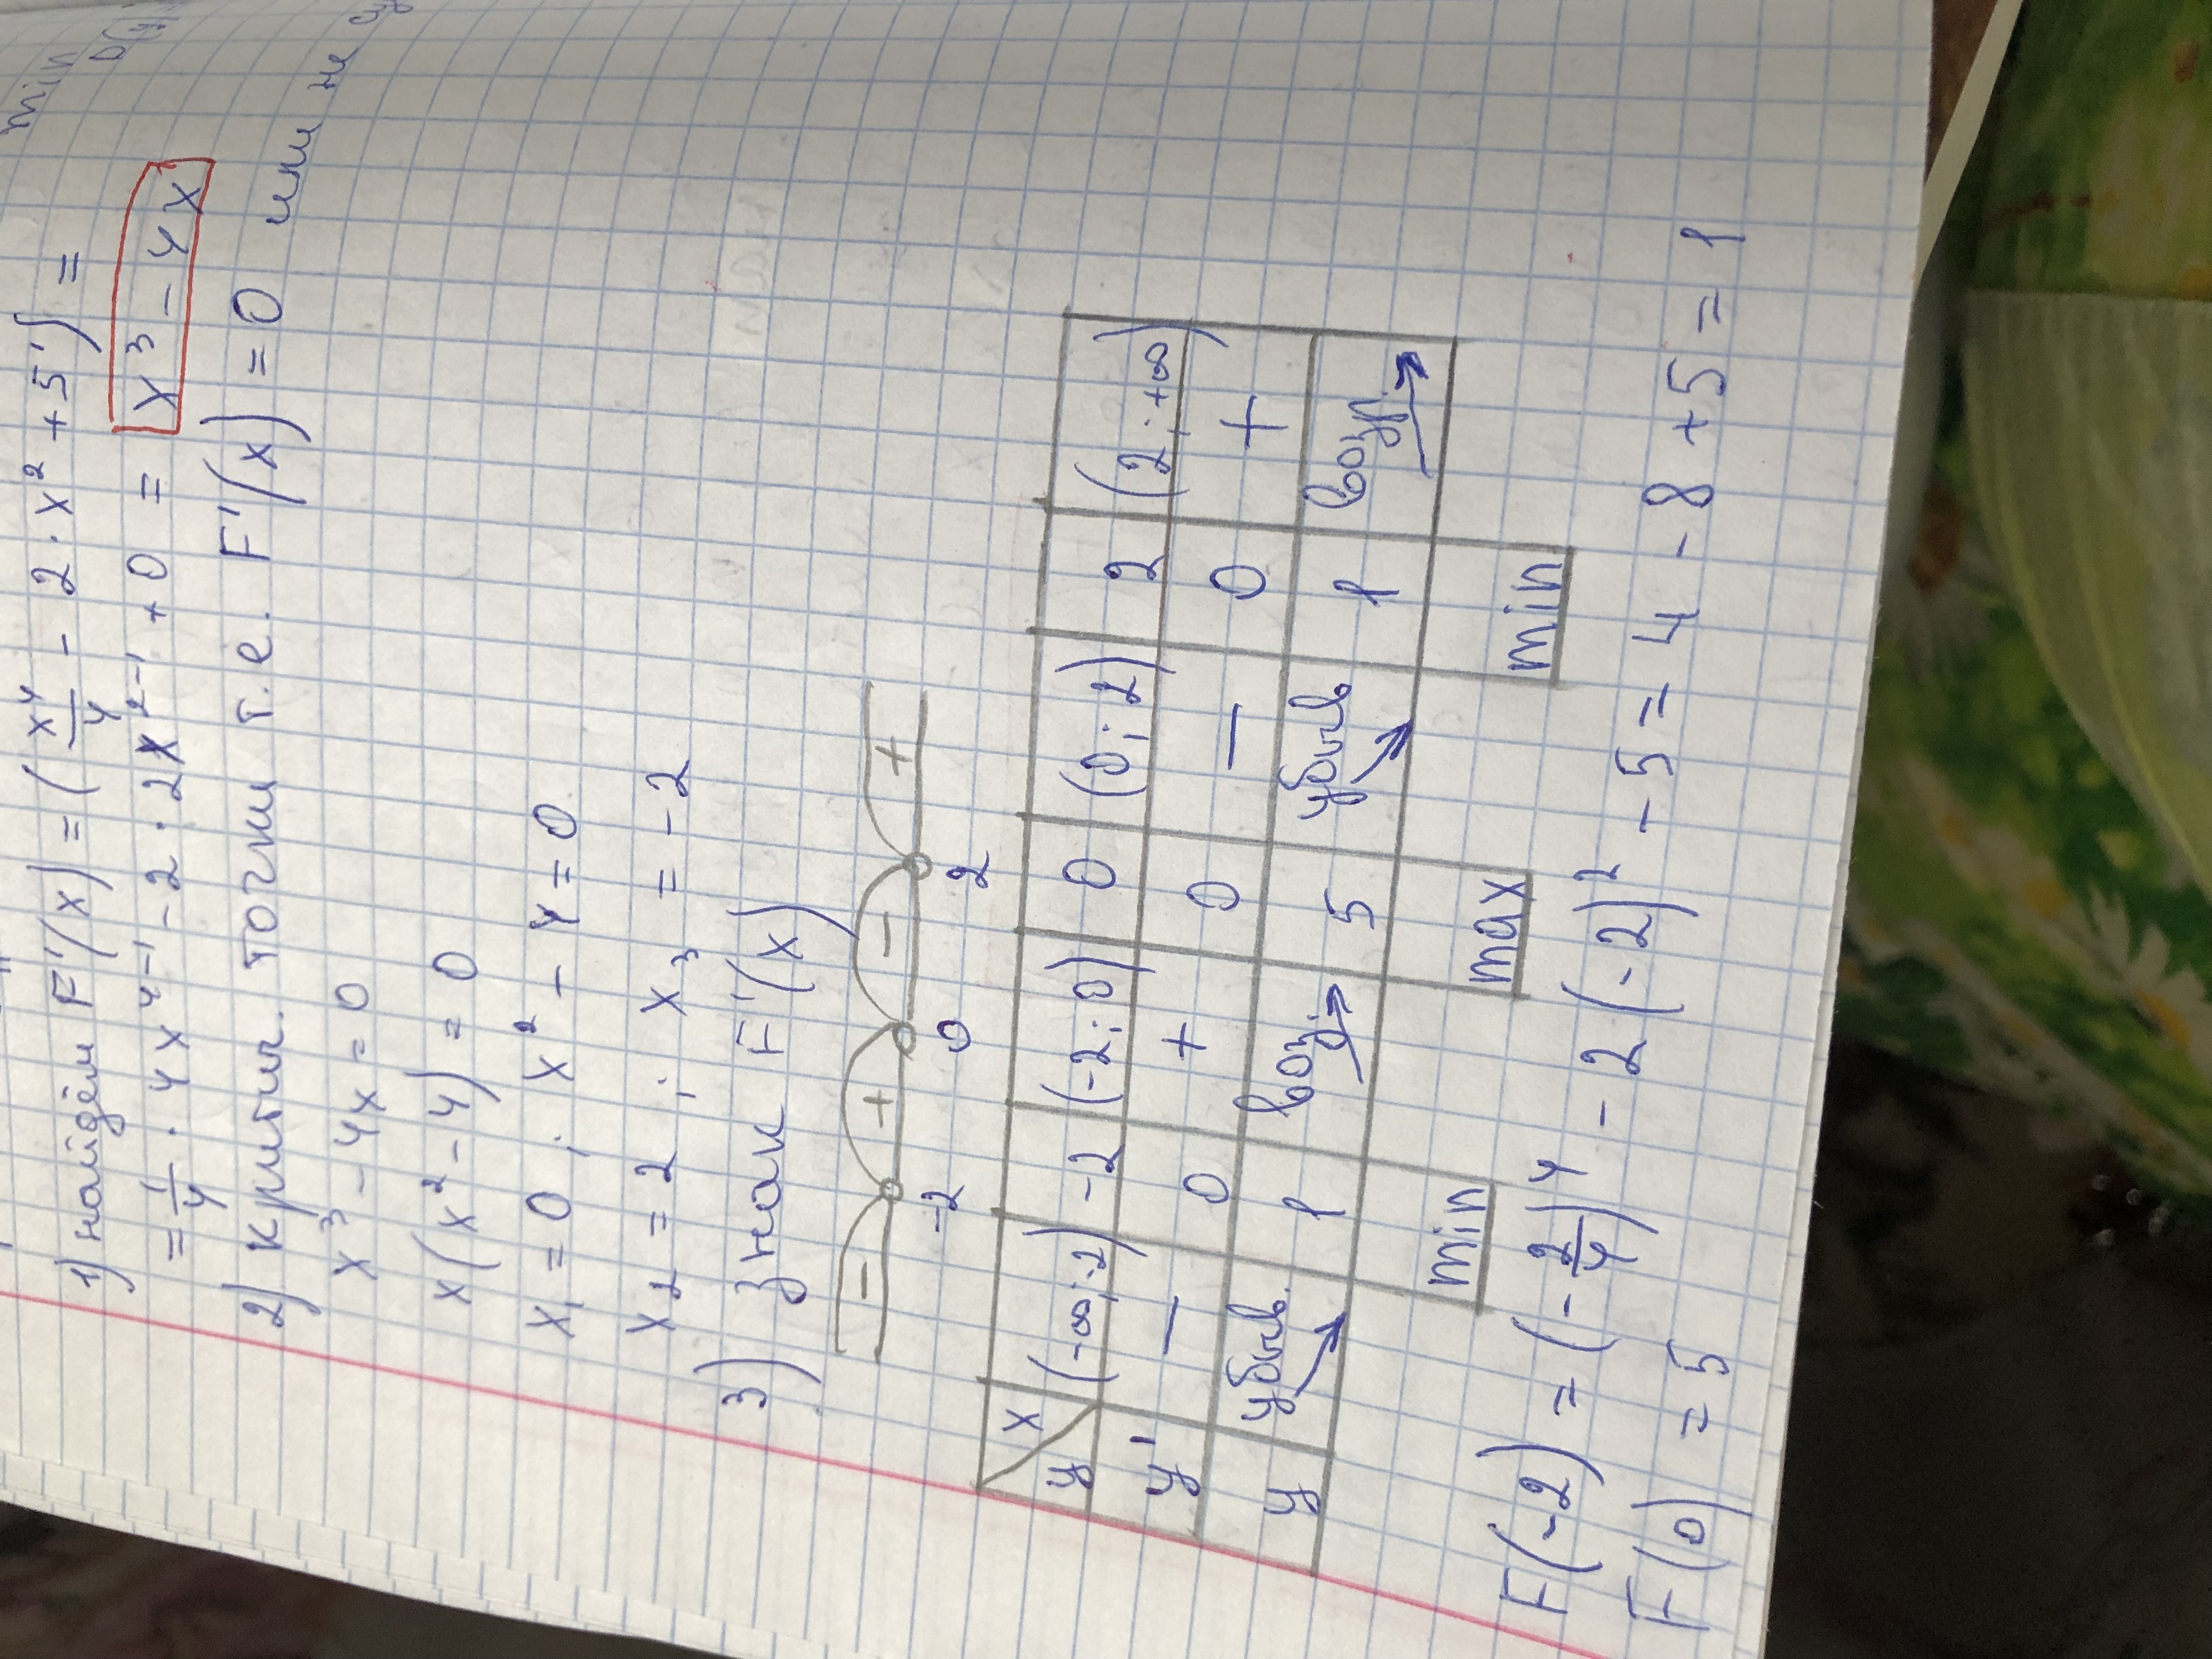 min
D(y)
1) найдём F'(x) = (x⁴/4 - 2 · x² + 5') =
= 1/4 · 4x⁴⁻¹ - 2 · 2x²⁻¹ + 0 = x³ - 4x
2) критич. точки т.е. F'(x) = 0 или не
x³ - 4x = 0
x(x² - 4) = 0
x₁ = 0 ; x² - 4 = 0
x₂ = 2 ; x₃ = -2
3) знак F'(x)
- + - +
-2 0 2
y x (-∞;-2) -2 (-2;0) 0 (0;2) 2 (2;+∞)
y' - 0 + 0 - 0 +
y убыв. 1 возр. 5 убыв 1 возр.
min max min
F(-2) = (-2/4)⁴ - 2(-2)² - 5 = 4 - 8 + 5 = 1
F(0) = 5